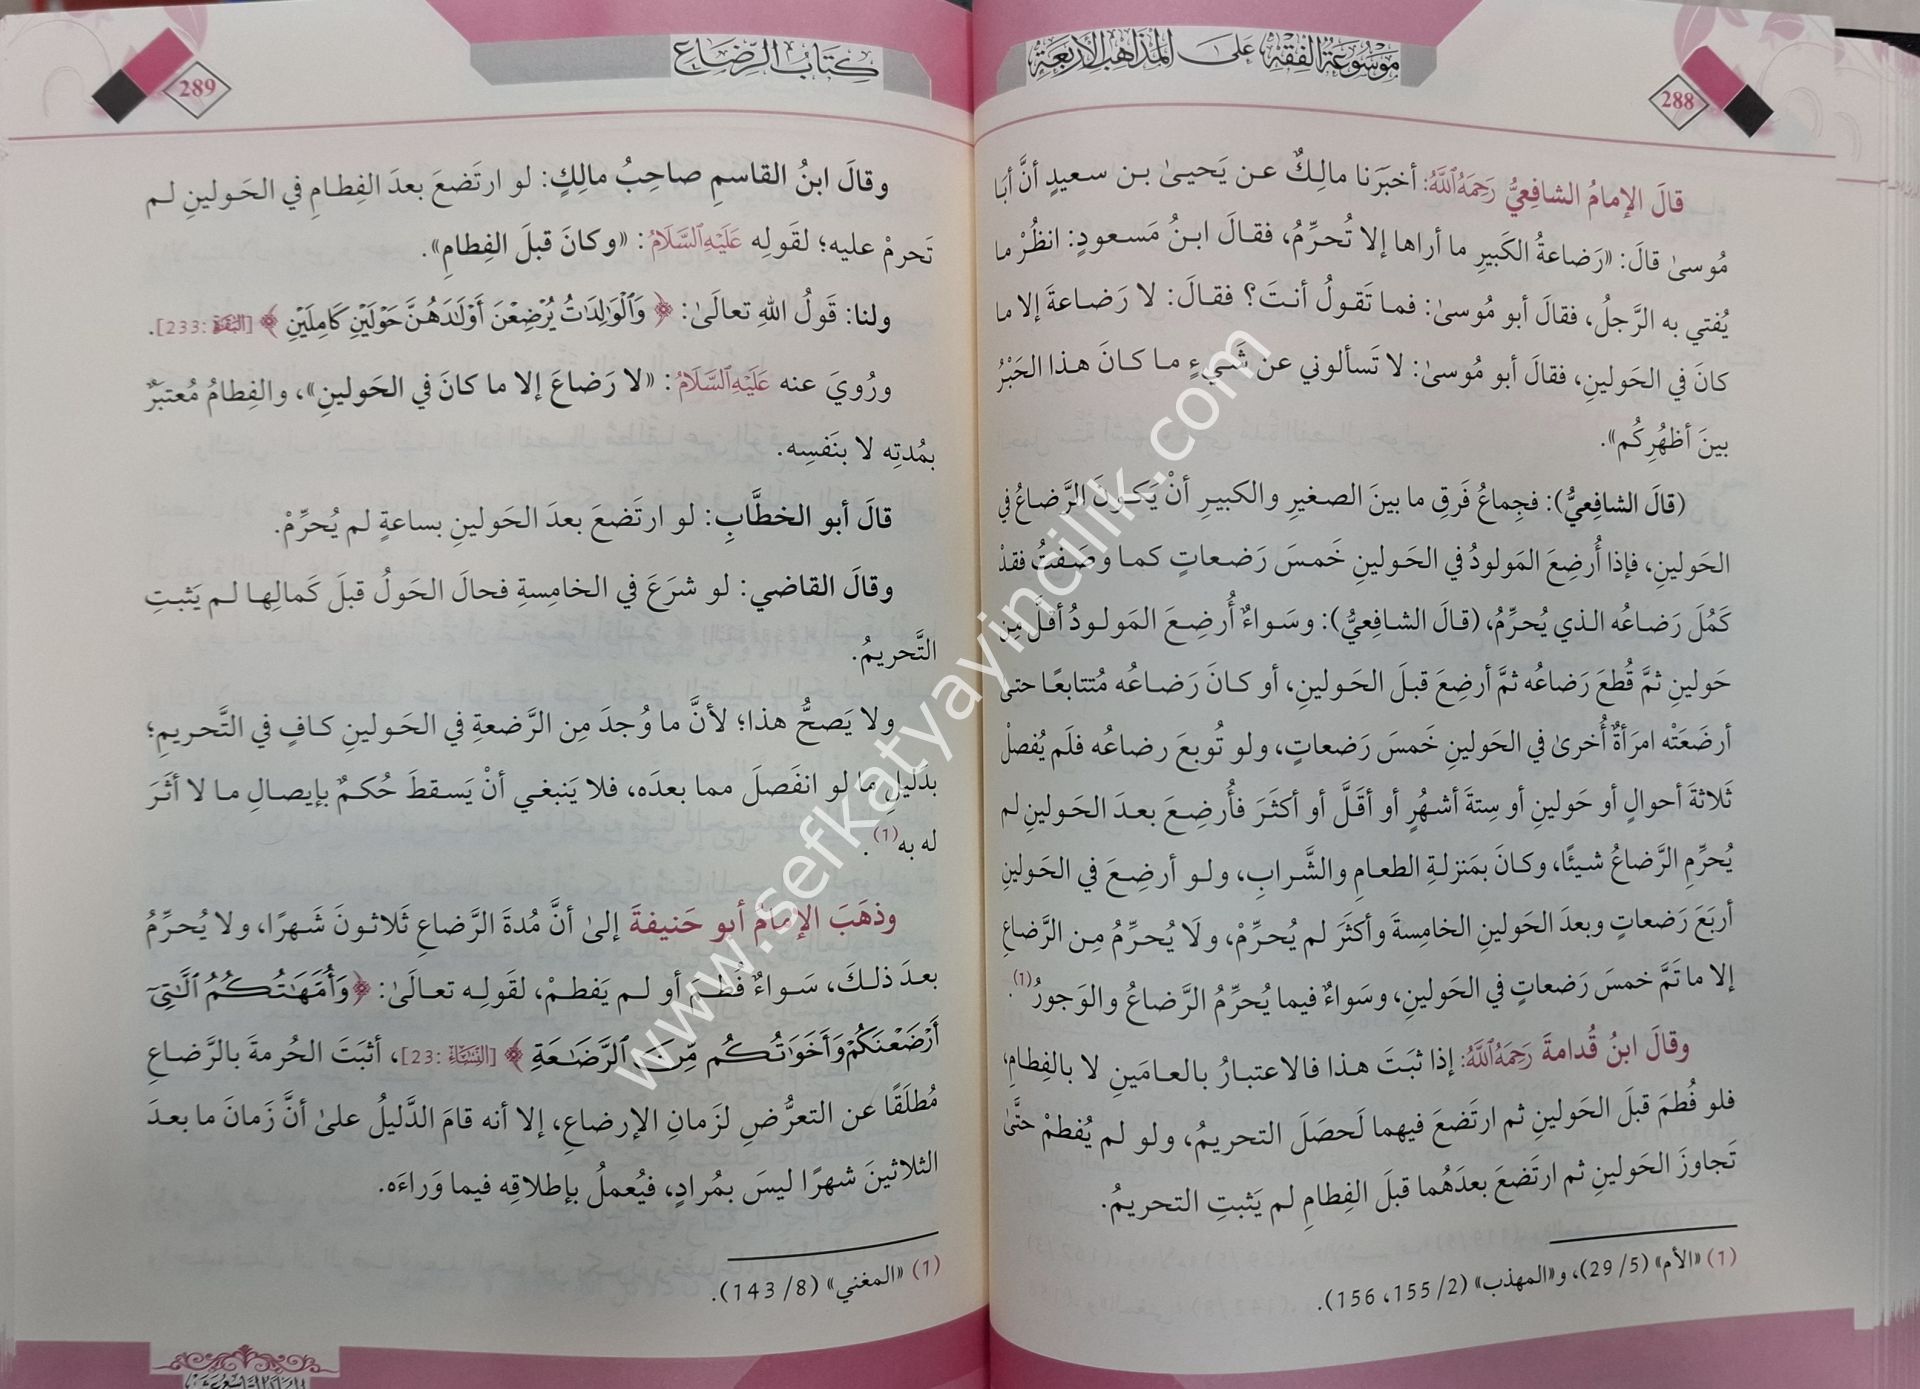 موسوعة الفقه على المذاهب الأربعة
288
قالَ الإمامُ الشافِعيُّ رَحِمَهُ ٱللَّهُ: أخبَرَنا مالِكٌ عن يَحيىٰ بنِ سعيدٍ أنَّ أبا
مُوسىٰ قالَ: «رَضاعةُ الكَبيرِ ما أراها إلا تُحرِّمُ، فقالَ ابنُ مَسعودٍ: انظُرْ ما
يُفتي به الرَّجلُ، فقالَ أبو مُوسىٰ: فما تَقولُ أنتَ؟ فقالَ: لا رَضاعةَ إلا ما
كانَ في الحَولينِ، فقالَ أبو مُوسىٰ: لا تَسألوني عن شَيءٍ ما كانَ هذا الحَبْرُ
بينَ أظهُرِكُم».
(قالَ الشافِعيُّ): فجِماعُ فَرقِ ما بينَ الصغيرِ والكبيرِ أنْ يَكونَ الرَّضاعُ في
الحَولينِ، فإذا أُرضِعَ المَولودُ في الحَولينِ خَمسَ رَضعاتٍ كما وصَفتُ فقدْ
كَمُلَ رَضاعُه الذي يُحرِّمُ، (قالَ الشافِعيُّ): وسَواءٌ أُرضِعَ المَولودُ أقلَّ مِن
حَولينِ ثمَّ قُطعَ رَضاعُه ثمَّ أرضِعَ قبلَ الحَولينِ، أو كانَ رَضاعُه مُتتابعًا حتىٰ
أرضَعَتْه امرَأةٌ أُخرىٰ في الحَولينِ خَمسَ رَضعاتٍ، ولو تُوبعَ رضاعُه فلَم يُفصلْ
ثَلاثةَ أحوالٍ أو حَولينِ أو سِتةَ أشهُرٍ أو أقَلَّ أو أكثَرَ فأُرضِعَ بعدَ الحَولينِ لم
يُحرِّمِ الرَّضاعُ شيئًا، وكانَ بمَنزلةِ الطعامِ والشَّرابِ، ولو أرضِعَ في الحَولينِ
أربَعَ رَضعاتٍ وبعدَ الحَولينِ الخامِسةَ وأكثَرَ لم يُحرِّمْ، ولَا يُحرِّمُ مِن الرَّضاعِ
إلا ما تَمَّ خمسَ رَضعاتٍ في الحَولينِ، وسَواءٌ فيما يُحرِّمُ الرَّضاعُ والوَجورُ(1).
وقالَ ابنُ قُدامةَ رَحِمَهُ ٱللَّهُ: إذا ثبَتَ هذا فالاعتبارُ بالعامَينِ لا بالفِطامِ،
فلو فُطمَ قبلَ الحَولينِ ثم ارتَضعَ فيهما لَحصَلَ التحريمُ، ولو لم يُفطمْ حتَّىٰ
تَجاوزَ الحَولينِ ثم ارتَضعَ بعدَهُما قبلَ الفِطامِ لم يَثبتِ التحريمُ.
(1) «الأم» (5/ 29)، و«المهذب» (2/ 155، 156).
كتاب الرضاع
289
وقالَ ابنُ القاسمِ صاحِبُ مالِكٍ: لو ارتَضعَ بعدَ الفِطامِ في الحَولينِ لم
تَحرمْ عليه؛ لقَولِه عَلَيْهِ ٱلسَّلَامُ: «وكانَ قبلَ الفِطامِ».
ولنا: قَولُ اللهِ تعالَىٰ: ﴿وَٱلْوَٰلِدَٰتُ يُرْضِعْنَ أَوْلَٰدَهُنَّ حَوْلَيْنِ كَامِلَيْنِ﴾ [البقرة: 233].
ورُويَ عنه عَلَيْهِ ٱلسَّلَامُ: «لا رَضاعَ إلا ما كانَ في الحَولينِ»، والفِطامُ مُعتبَرٌ
بمُدتِه لا بنَفسِه.
قالَ أبو الخطَّابِ: لو ارتَضعَ بعدَ الحَولينِ بساعةٍ لم يُحرِّمْ.
وقالَ القاضي: لو شرَعَ في الخامِسةِ فحالَ الحَولُ قبلَ كَمالِها لم يَثبتِ
التَّحريمُ.
ولا يَصحُّ هذا؛ لأنَّ ما وُجدَ مِن الرَّضعةِ في الحَولينِ كافٍ في التَّحريمِ؛
بدَليلِ ما لو انفَصلَ مما بعدَه، فلا يَنبغي أنْ يَسقطَ حُكمٌ بإيصالِ ما لا أثَرَ
له به(1).
وذهَبَ الإمامُ أبو حَنيفةَ إلىٰ أنَّ مُدةَ الرَّضاعِ ثَلاثونَ شَهرًا، ولا يُحرِّمُ
بعدَ ذلكَ، سَواءٌ فُطمَ أو لم يَفطمْ، لقَولِه تعالَىٰ: ﴿وَأُمَّهَٰتُكُمُ ٱلَّٰتِىٓ
أَرْضَعْنَكُمْ وَأَخَوَٰتُكُم مِّنَ ٱلرَّضَٰعَةِ﴾ [النساء: 23]، أثبَتَ الحُرمةَ بالرَّضاعِ
مُطلَقًا عن التعرُّضِ لزَمانِ الإرضاعِ، إلا أنه قامَ الدَّليلُ علىٰ أنَّ زَمانَ ما بعدَ
الثلاثينَ شهرًا ليسَ بمُرادٍ، فيُعملُ بإطلاقِه فيما وَراءَه.
(1) «المغني» (8/ 143).
www.sefkatyayincilik.com